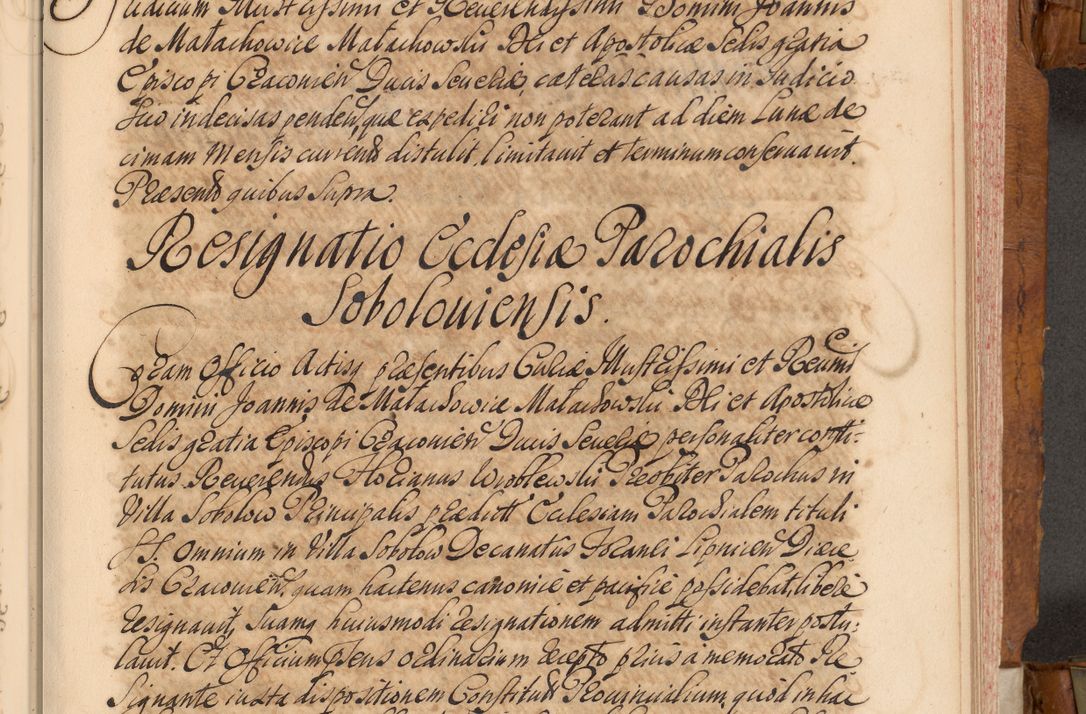 Judicium Illustrissimi et Reverendissimi Domini Joannis
de Małachowice Małachowski Dei et Apostolicæ Sedis gratia
Episcopi Cracovien Ducis Severiæ, cæteras causas in Judicio
suo indecisas penden, quæ expediri non poterant ad diem Lunæ de
cimam Mensis currents distulit, limitavit et terminum conservavit.
Præsento quibus supra.
Resignatio Ecclesiæ Parochialis
Soboloviensis.
Coram Officio Actisq præsentibus Curiæ Illustrissimi et Reverendissimi
Domini Joannis De Małachowice Małachowski Dei et Apostolicæ
Sedis gratia Episcopi Cracovien Ducis Severiæ personaliter consti-
tutus Reverendus Florianus Wroblewski Presbiter Parochus in
Villa Sobolow Principalis prædict Ecclesiam Parochialem tituli
SS. Omnium in Villa Sobolow Decanatus Foranei Lipnicen Diœce
sis Cracovien. quam hactenus canonicè et pacificè possidebat, liberè
resignavit, Suamq huiusmodi resignationem admitti instanter postu-
lavit. Et Officium
 ordinarium recepto prius à memorato Re
signante iuxta dispositionem Constitut Provincialium, quod in hac